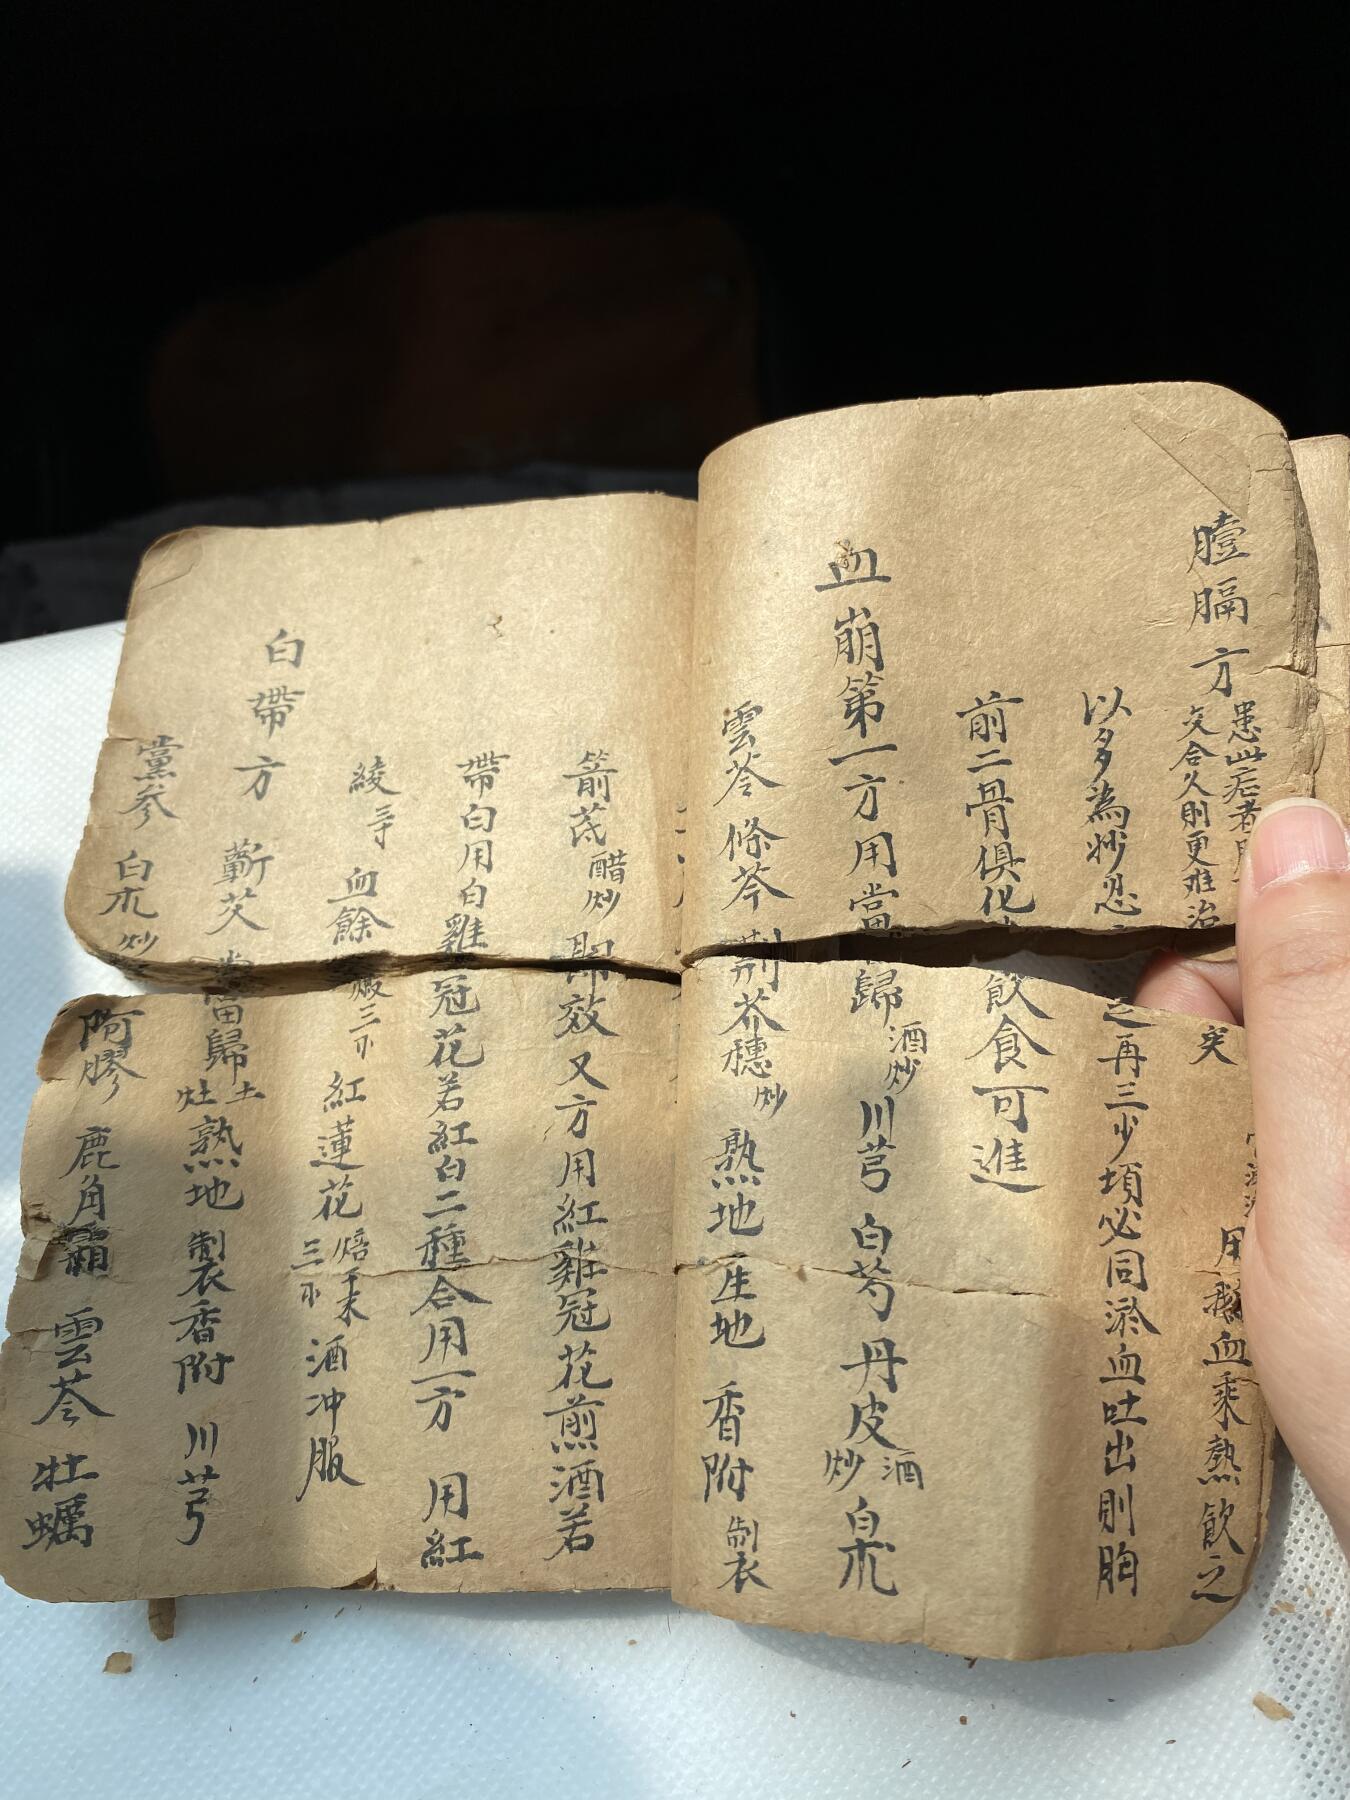 膻膈方 患此症者 交合久則更难治 突 用鵝血乘熱飲之
以多為妙忍之再三少頃必同淤血吐出則胸
前二骨俱化飲食可進
血崩第一方用當歸酒炒 川芎 白芍 丹皮酒炒 白朮
雲苓 條芩 荊芥穗炒 熟地 生地 香附製
箭芪醋炒 即效又方用紅雞冠花煎酒若
帶白用白雞冠花若紅白二種合用一方 用紅
綾 血餘煅三 紅蓮花焙干末三 酒冲服
白帶方 蘄艾 當歸土灶 熟地 製香附 川芎
黨參 白朮炒 阿膠 鹿角霜 雲苓 牡蠣